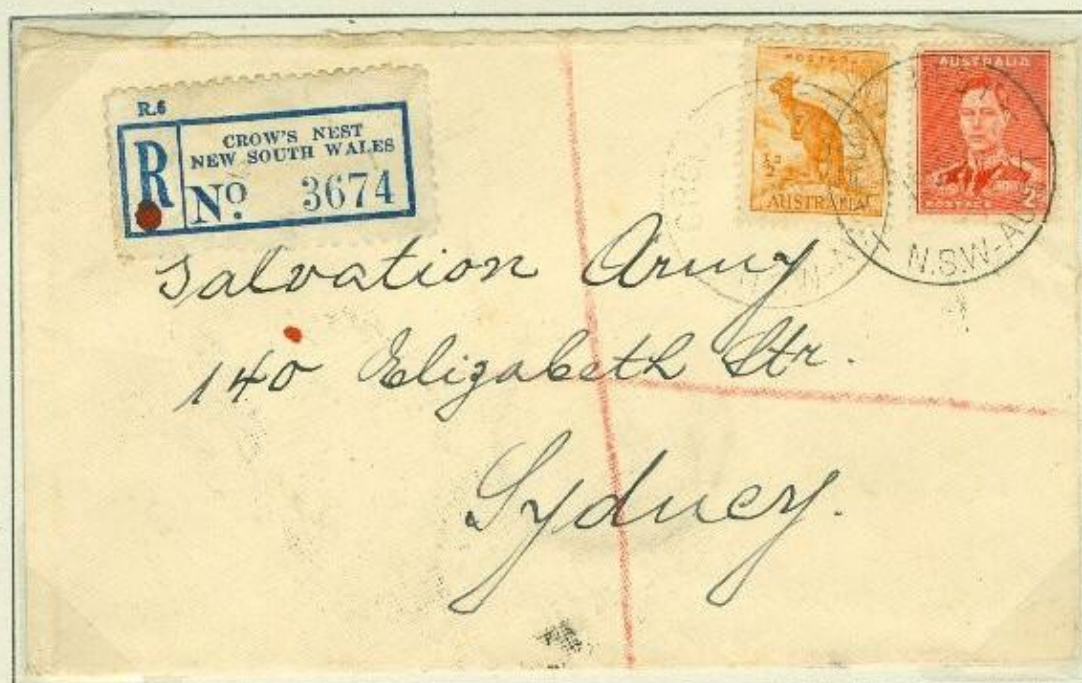 R.6
R
CROW'S NEST
NEW SOUTH WALES
No. 3674
POSTAGE
½D
AUSTRALIA
AUSTRALIA
POSTAGE
2D
N.S.W-AU
Salvation Army
140 Elizabeth Str.
Sydney.